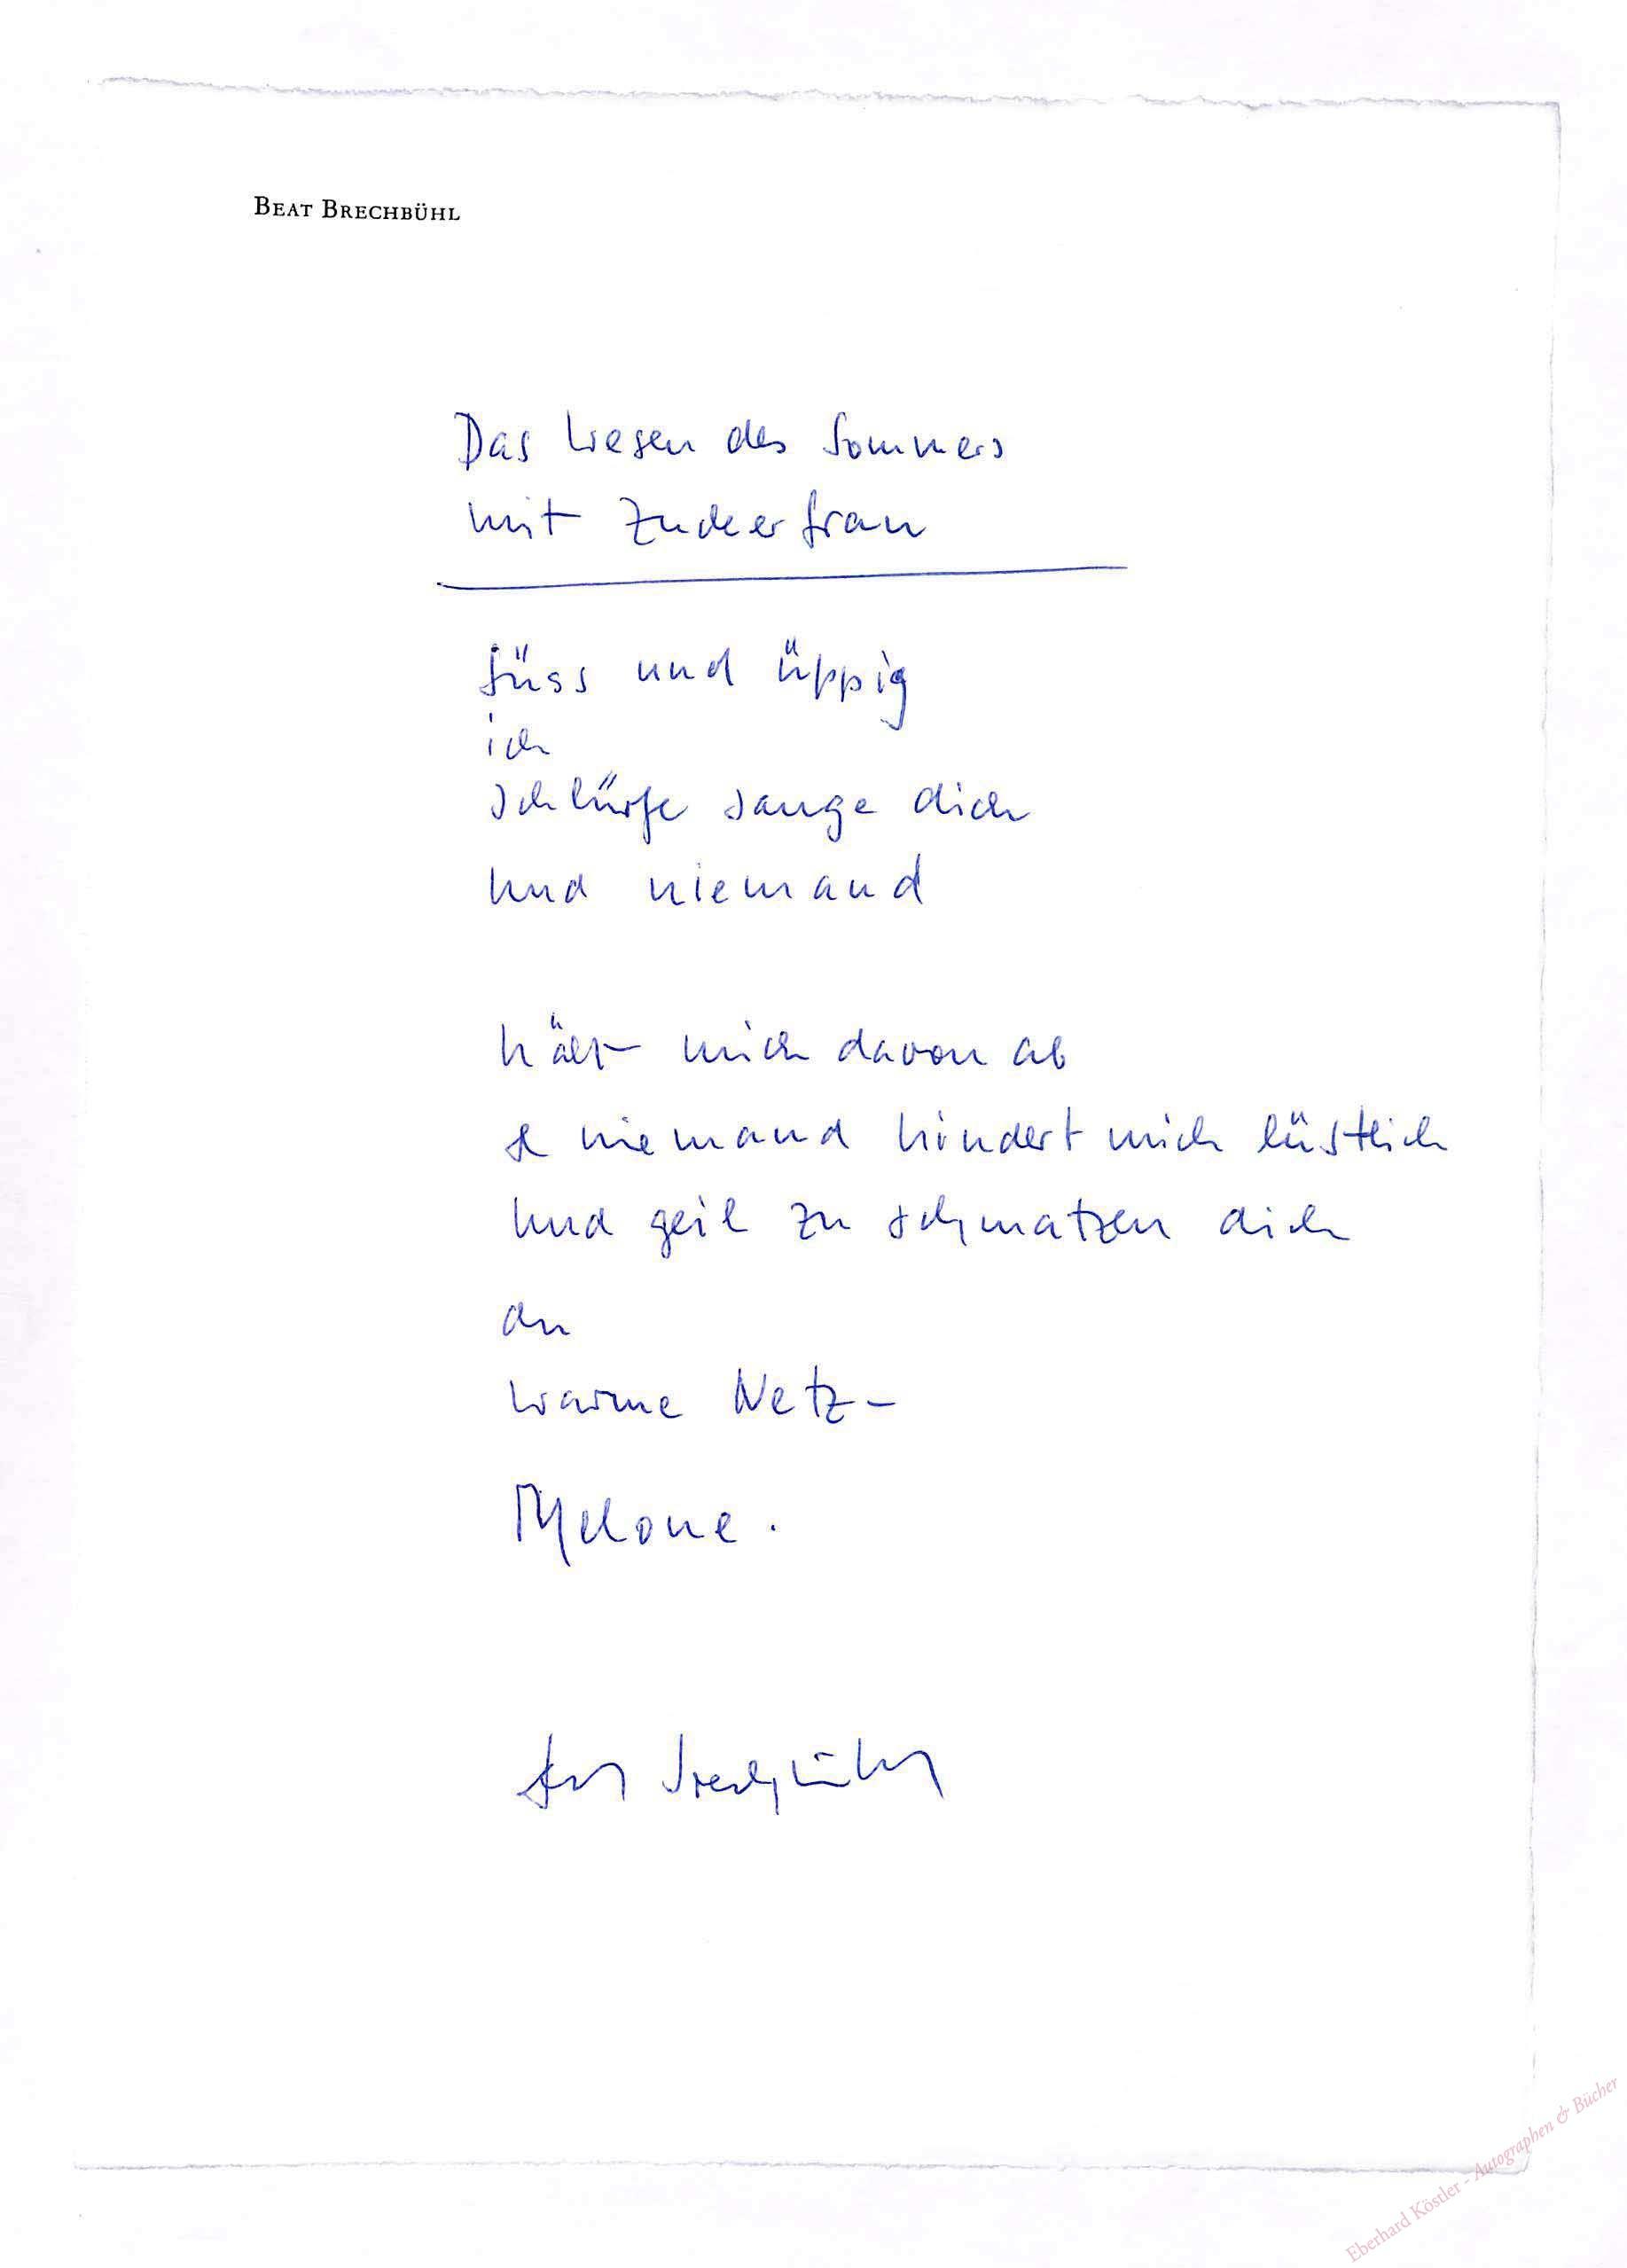 BEAT BRECHBÜHL
Das Wesen des Sommers
mit Zuckerfrau
süss und üppig
ich
schlürfe sauge dich
und niemand
hält mich davon ab
& niemand hindert mich lüstlich
und geil zu schmatzen dich
du
warme Netz-
Melone.
Beat Brechbühl
Eberhard Köstler - Autographen & Bücher